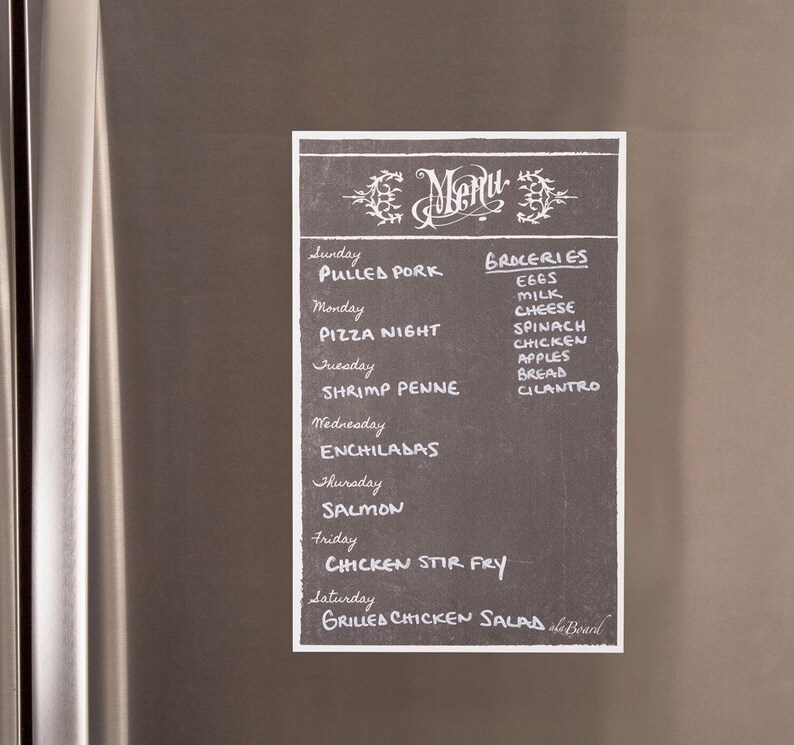 Menu
Sunday
PULLED PORK
Monday
PIZZA NIGHT
Tuesday
SHRIMP PENNE
Wednesday
ENCHILADAS
Thursday
SALMON
Friday
CHICKEN STIR FRY
Saturday
GRILLED CHICKEN SALAD
GROCERIES
EGGS
MILK
CHEESE
SPINACH
CHICKEN
APPLES
BREAD
CILANTRO
ala Board